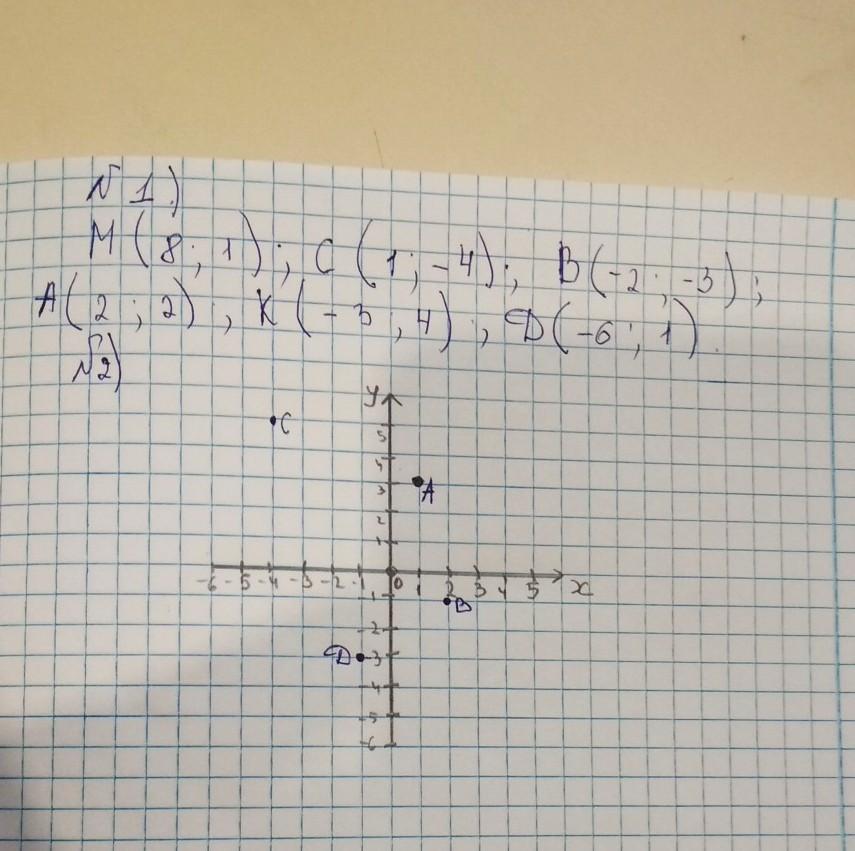 № 1)
М (8; 1); С (1; -4); В (-2; -3);
А (2; 2); К (-3; 4); D (-6; 1).
№2)
y
C
5
4
3
A
2
1
-6 -5 -4 -3 -2 -1 0 1 2 3 4 5 x
-1
B
-2
D -3
-4
-5
-6